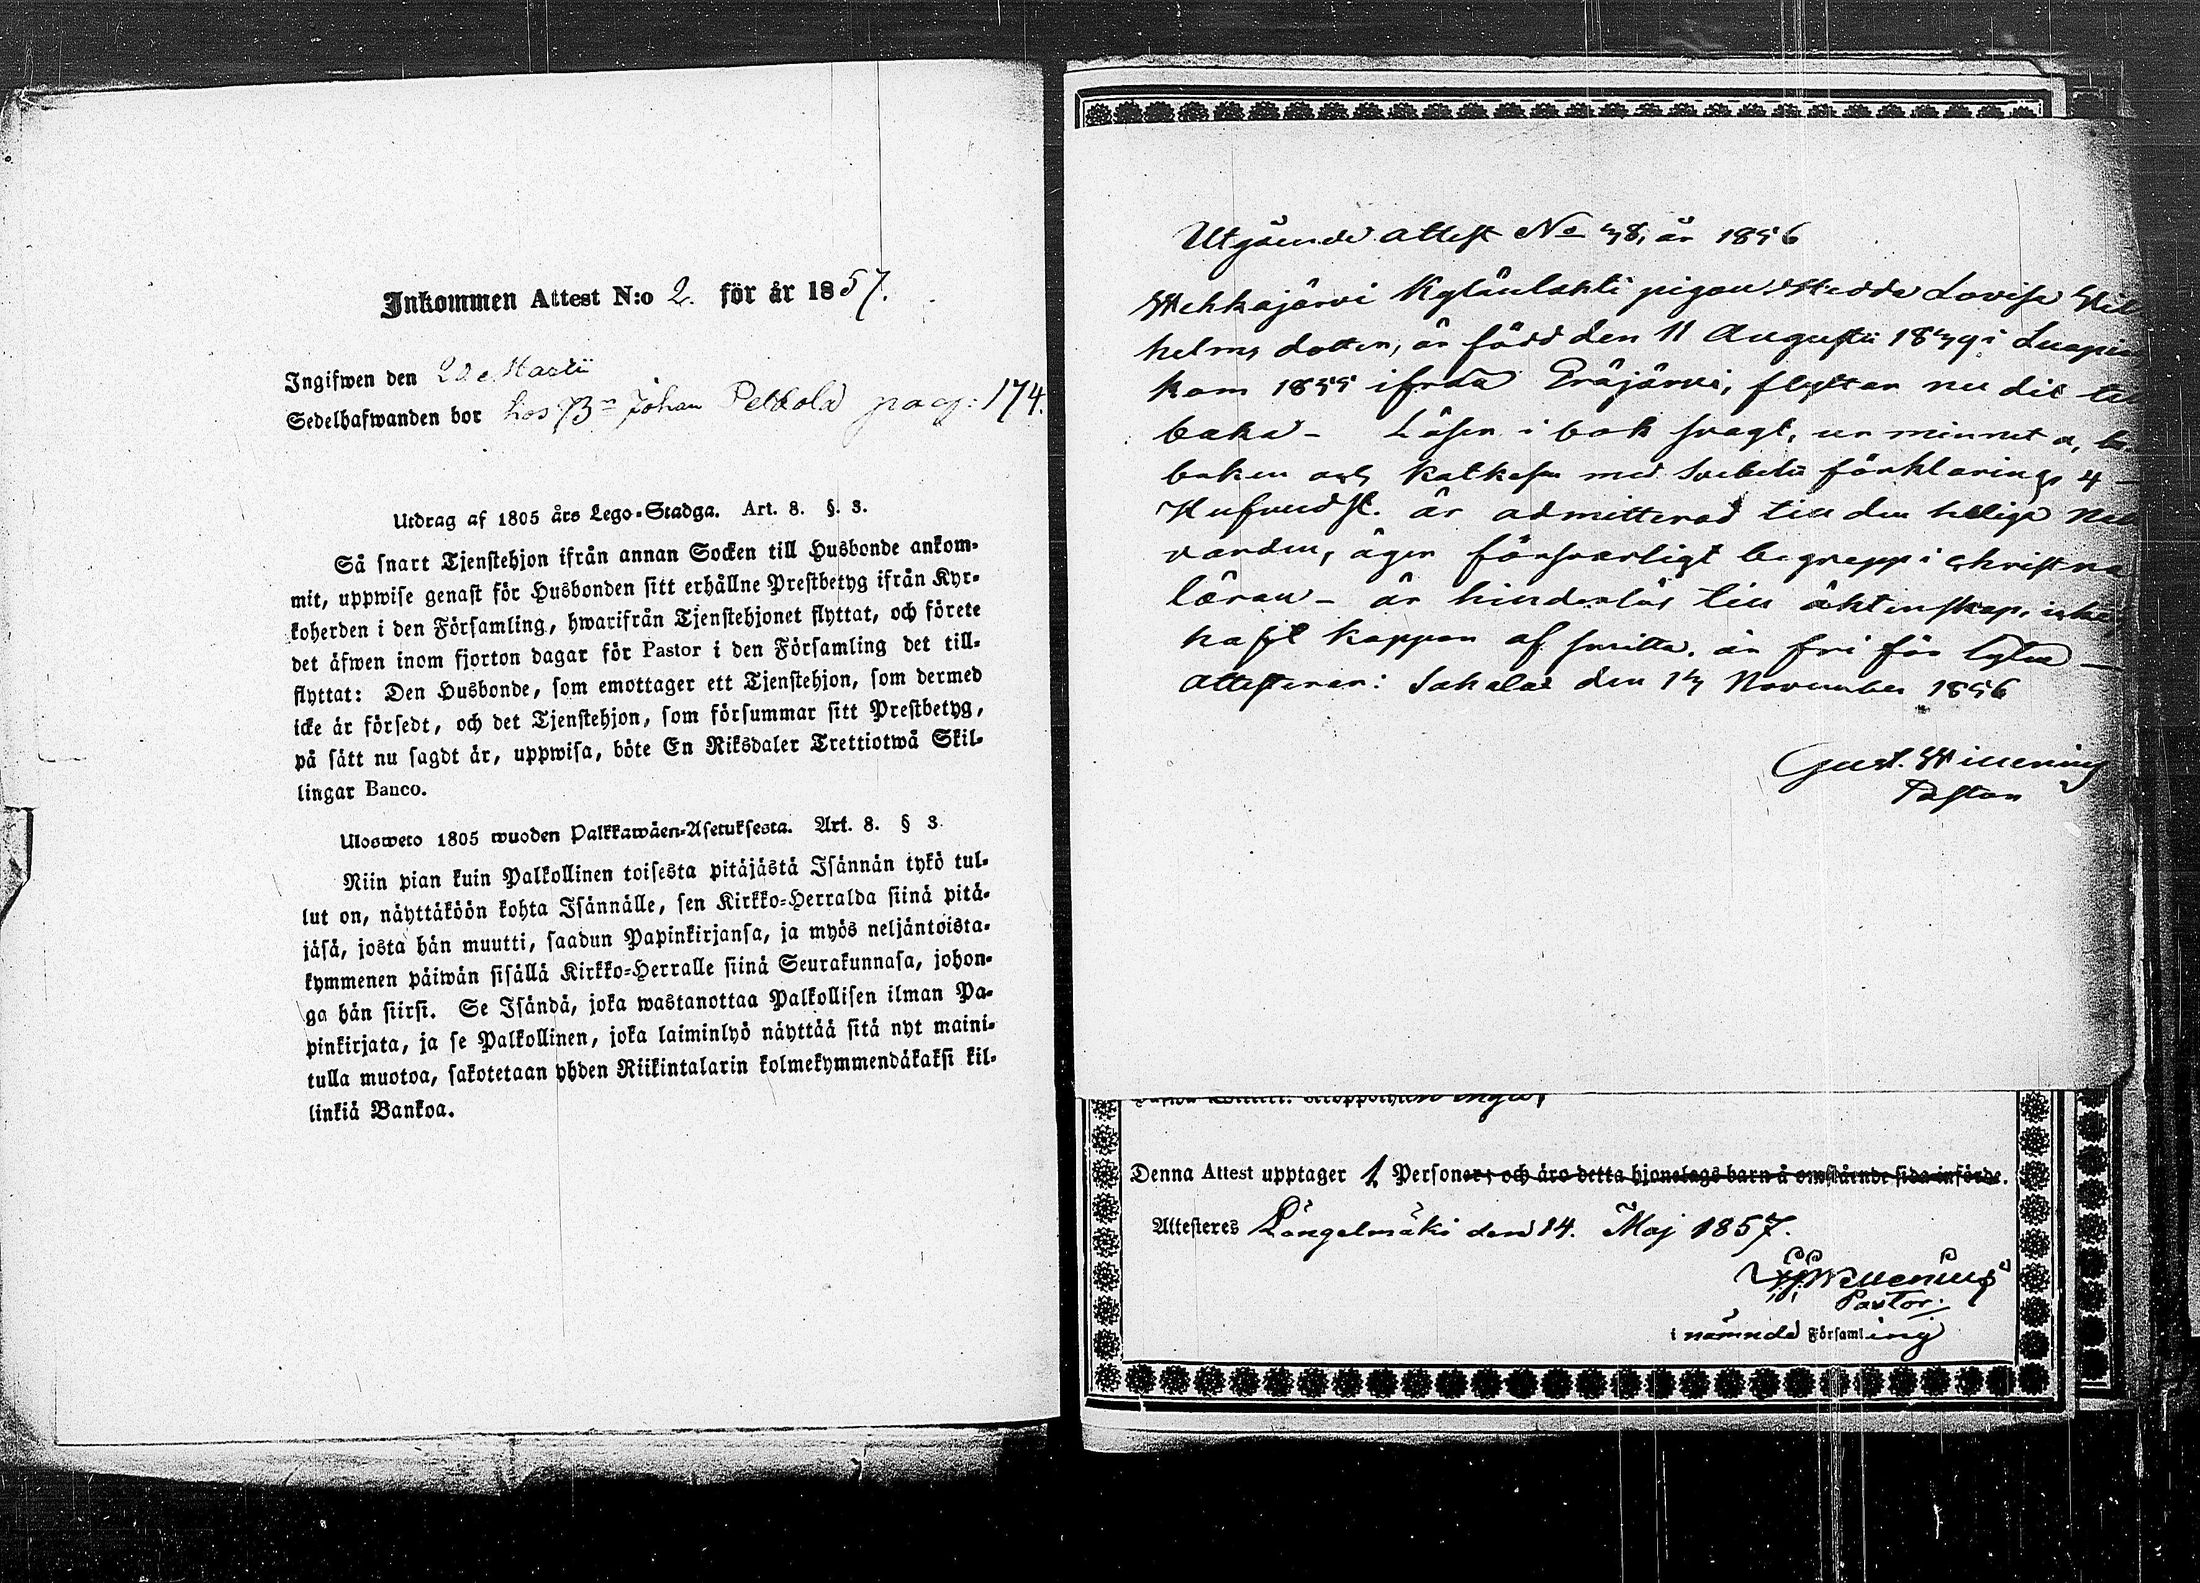 Inkommen Attest N:o 2. för år 1857.
Ingifwen den Martii
Sedelhafwanden bor hos Bn Johan Pelkola pag: 174.
Utdrag af 1805 års Lego-Stadga. Art. 8. §. 3.
Så snart Tjenstehjon ifrån annan Socken till Husbonde ankom-
mit, uppwise genast för Husbonden sitt erhållne Prestbetyg ifrån Kyr-
koherden i den Församling, hwarifrån Tjenstehjonet flyttat, och förete
det äfwen inom fjorton dagar för Pastor i den Församling det till-
flyttat: Den Husbonde, som emottager ett Tjenstehjon, som dermed
icke är försedt, och det Tjenstehjon, som försummar sitt Prestbetyg,
på sätt nu sagdt är, uppwisa, böte En Riksdaler Trettiotwå Skil-
lingar Banco.
Ulosweto 1805 wuoden Palkkawäen-Asetuksesta. Art. 8. § 3.
Niin pian kuin Palkollinen toisesta pitäjästä Isännän tykö tul-
lut on, näyttäköön kohta Isännälle, sen Kirkko-Herralda siinä pitä-
jäsä, josta hän muutti, saadun Papinkirjansa, ja myös neljäntoista-
kymmenen päiwän sisällä Kirkko-Herralle siinä Seurakunnasa, johon-
ga hän siirsi. Se Isändä, joka wastanottaa Palkollisen ilman Pa-
pinkirjata, ja se Palkollinen, joka laiminlyö näyttää sitä nyt maini-
tulla muotoa, sakotetaan yhden Riikintalarin kolmekymmendäkaksi kil-
linkiä Bankoa.
Utgående attest No 58, år 1856
Wehkajärvi Kylänlahti pigan Hedda Lovisa Wil
helms dotter, är född den 11 Augusti i
kom 1855 ifrån Eräjärvi, flyttar nu dit til
baka - Läser i bok svagt, ur minnet a, b.
boken och Katkesen med Svebelii förklarings 4 -
Hufvudst. är admitterad till den heliga Nat
varden, äger försvarligt begrepp i christna
läran - är hinderlös till äktenskap,
haft koppor af smitta. är fri för lyte -
attesterar: Sahalax den 15 November 1856
Gust. Willenius
Pastor
Denna Attest upptager 1 Personer; och äro detta hjonelags barn å omstående sida införde.
Attesteres Längelmäki den 14. Maj 1857.
Willenius
Pastor.
i nämnde Församling